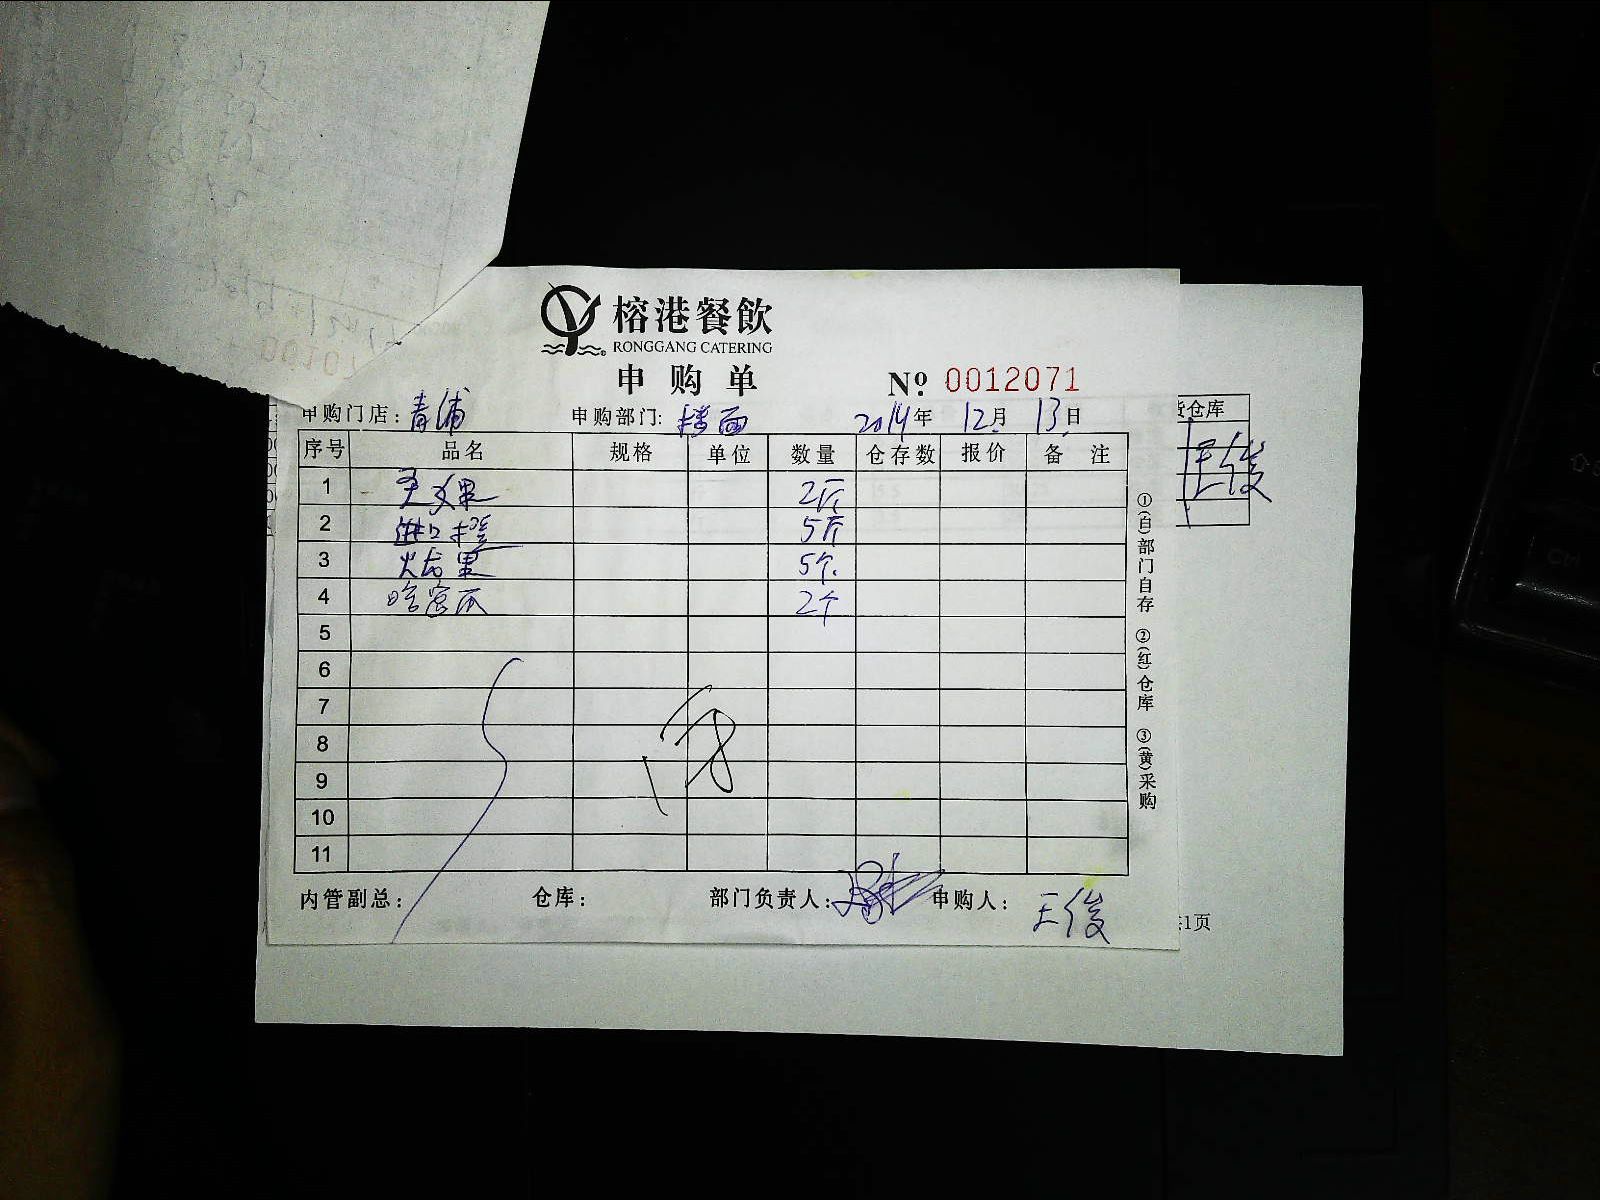 榕港餐飲
RONGGANG CATERING
申购单
Nº 0012071
申购门店: 青浦 申购部门: 楼面 2014年 12月 13日
序号 品名 规格 单位 数量 仓存数 报价 备注
1 果 2斤
2 进口橙 5斤
3 火龙果 5个
4 哈密瓜 2个
5
6
7
8
9
10
11
内管副总: 仓库: 部门负责人: 申购人: 王俊
①(白)部门自存 ②(红)仓库 ③(黄)采购
货仓库
王俊
共1页